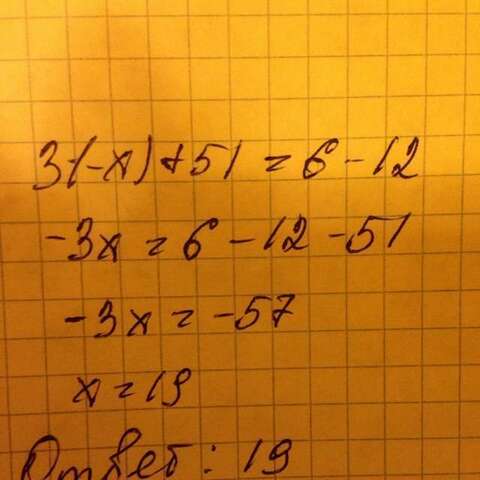 3·(-x)+51=6-12
-3x=6-12-51
-3x=-57
x=19
Ответ: 19